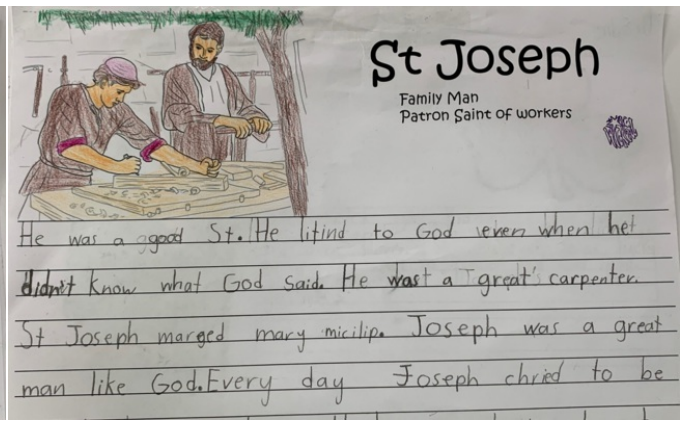 St Joseph
Family Man
Patron Saint of workers
He was a good St. He litind to God even when het
didn't know what God said. He wast a great carpenter.
St Joseph marged mary micilip. Joseph was a great
man like God. Every day Joseph chried to be